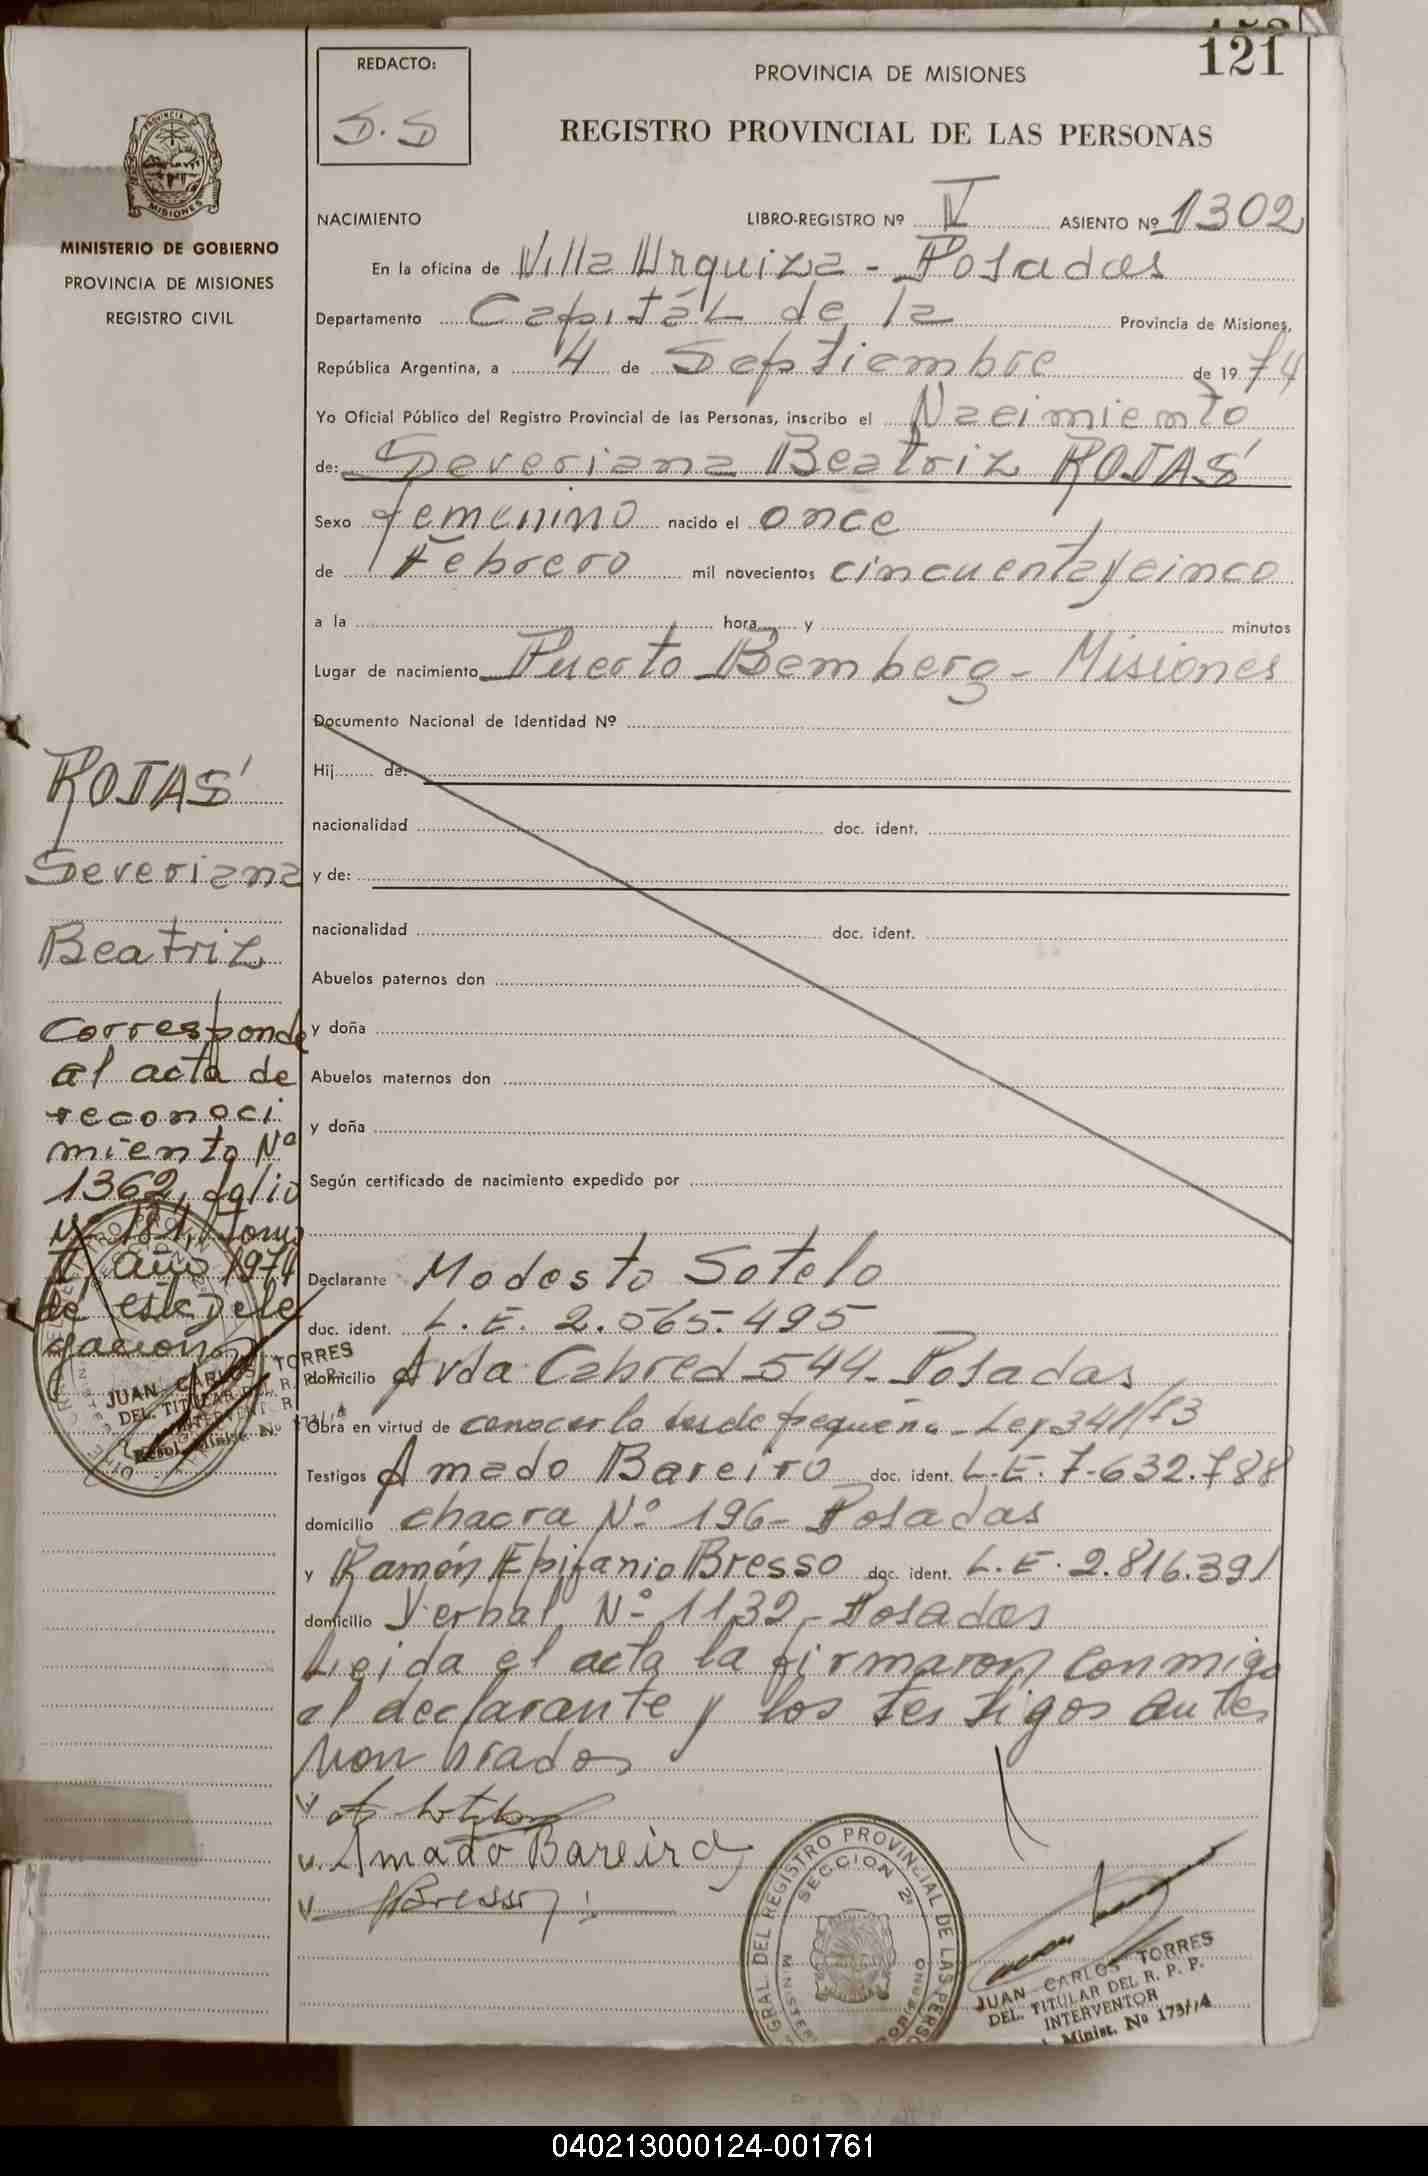 121
REDACTO:
S.S
PROVINCIA DE MISIONES
REGISTRO PROVINCIAL DE LAS PERSONAS
PROVINCIA DE MISIONES
MINISTERIO DE GOBIERNO
PROVINCIA DE MISIONES
REGISTRO CIVIL
NACIMIENTO LIBRO-REGISTRO Nº V ASIENTO Nº 1302
En la oficina de Villa Urquiza - Posadas
Departamento Capitál de la Provincia de Misiones,
República Argentina, a 4 de Septiembre de 1974
Yo Oficial Público del Registro Provincial de las Personas, inscribo el Nacimiento
de: Severiana Beatriz ROJAS
Sexo femenino nacido el once
de Febrero mil novecientos cincuenta y cinco
a la hora y minutos
Lugar de nacimiento Puerto Bemberg - Misiones
Documento Nacional de Identidad Nº
Hij de:
nacionalidad doc. ident.
y de:
nacionalidad doc. ident.
Abuelos paternos don
y doña
Abuelos maternos don
y doña
Según certificado de nacimiento expedido por
Declarante Modesto Sotelo
doc. ident. L.E. 2.565.495
domicilio Avda Cabred 544 - Posadas
Obra en virtud de conocerlo desde pequeña - Ley 341/73
Testigos Amado Bareiro doc. ident. L.E. 7.632.788
domicilio chacra Nº 196 - Posadas
y Ramón Epifanio Bresso doc. ident. L.E. 2.816.391
domicilio Yerbal Nº 1132 - Posadas
Leida el acta la firmaron conmigo
el declarante y los testigos ante
nombrados
Amado Bareiro
Bresso
GRAL. DEL REGISTRO PROVINCIAL DE LAS PERSO
SECCION 2ª
JUAN CARLOS TORRES
DEL. TITULAR DEL R. P. P.
INTERVENTOR
Minist. Nº 173/74
ROJAS
Severiana
Beatriz
Corresponde
al acta de
reconoci
miento Nº
1362, folio
Nº 181, Tomo
año 1974
de esta Dele
gacion
JUAN CARLOS TORRES
DEL. TITULAR DEL R. P. P.
INTERVENTOR
Resol. Minist. Nº 173/74
040213000124-001761